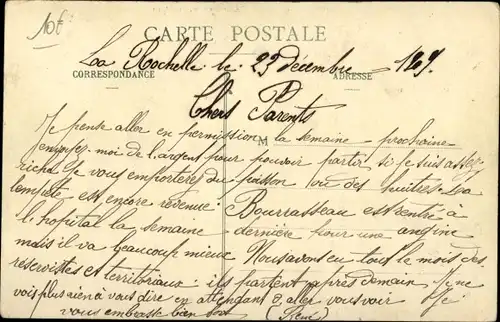 10f
CARTE POSTALE
La Rochelle le 23 décembre 1909.
CORRESPONDANCE
ADRESSE
Chers Parents
M
Je pense aller en permission la semaine prochaine
envoyez-moi de l'argent pour pouvoir partir si je suis assez
riche je vous emporterez du poisson ou des huitres. La
tempête est encore revenue. Bourrasseau est rentré à
l'hopital la semaine dernière pour une angine
mais il va beaucoup mieux. Nous avons eu tout le mois des
réservistes et territoriaux ils partent après demain. Je ne
vois plus rien à vous dire en attendant d'aller vous voir Je
vous embrasse bien tous (René)